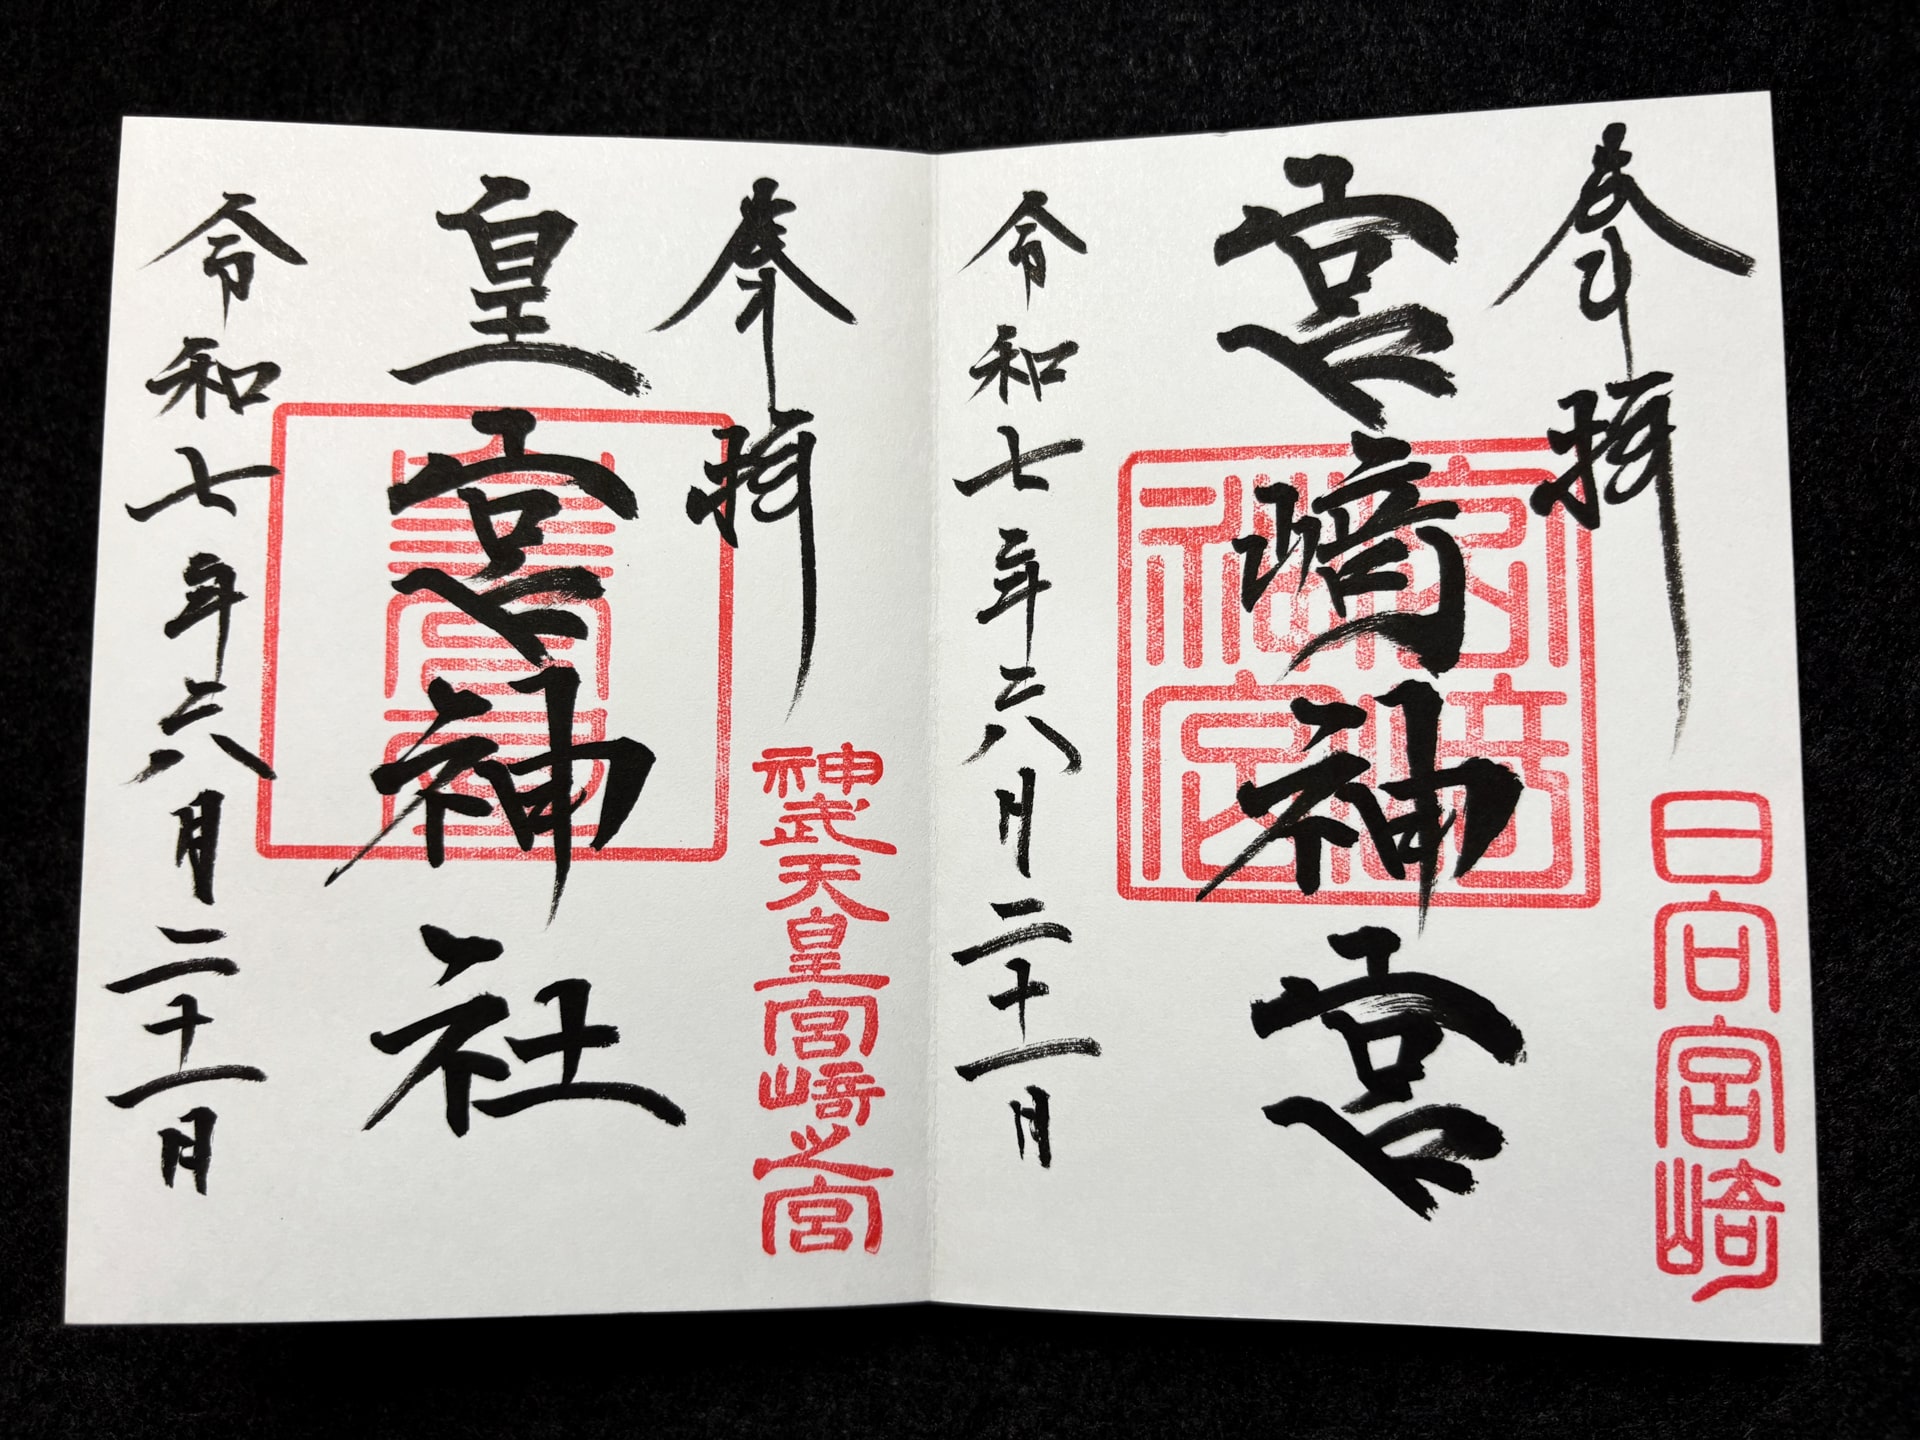 奉拝
日向宮崎
宮﨑神宮
宮崎神宮
令和七年六月二十一日
奉拝
神武天皇宮崎之宮
皇宮神社
皇宮屋
令和七年六月二十一日